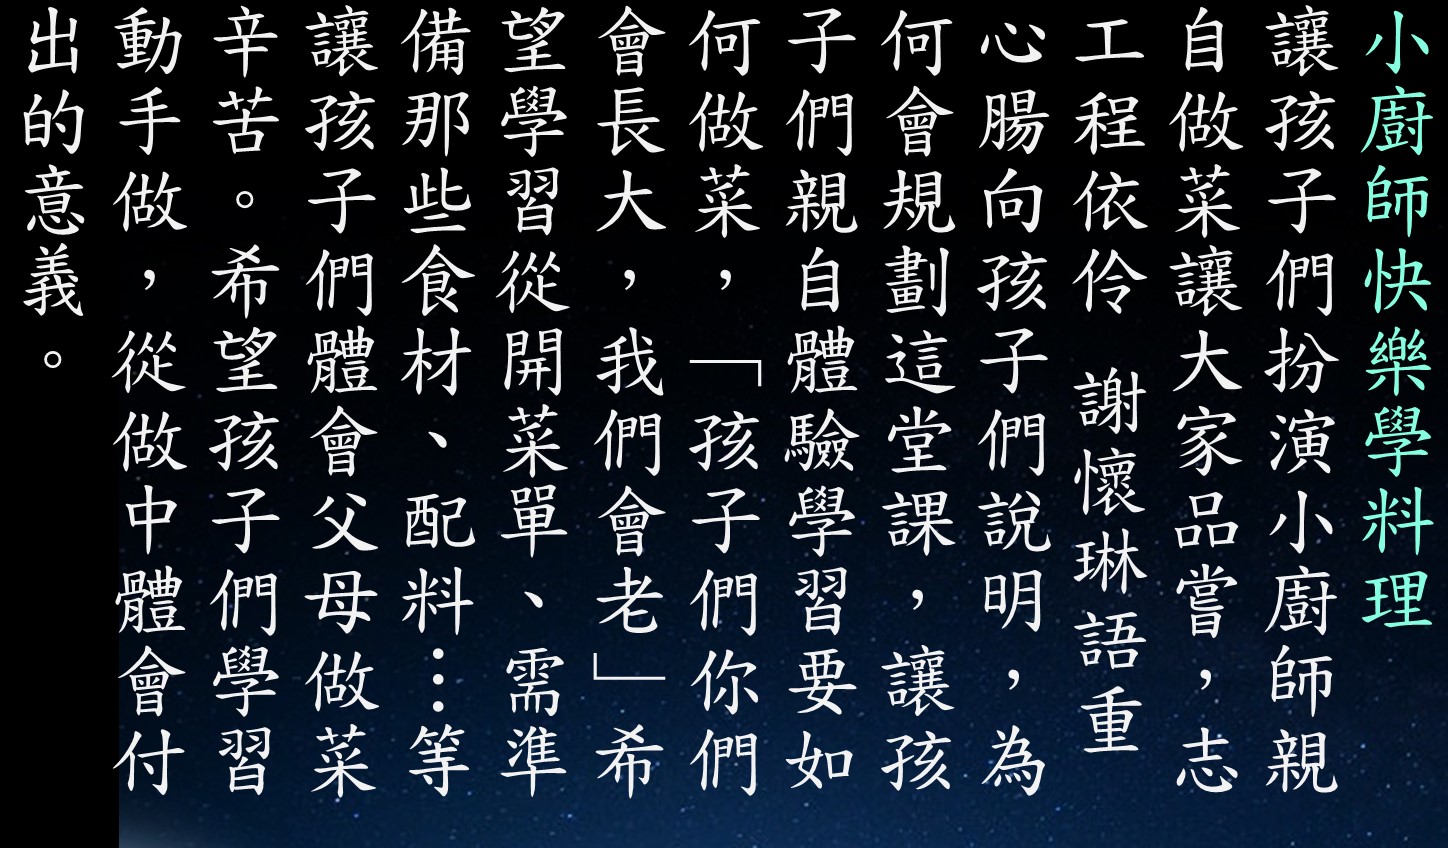 小廚師快樂學料理
讓孩子們扮演小廚師親
自做菜讓大家品嘗，志
工程依伶 謝懷琳語重
心腸向孩子們說明，為
何會規劃這堂課，讓孩
子們親自體驗學習要如
何做菜，「孩子們你們
會長大，我們會老」希
望學習從開菜單、需準
備那些食材、配料…等
讓孩子們體會父母做菜
辛苦。希望孩子們學習
動手做，從做中體會付
出的意義。